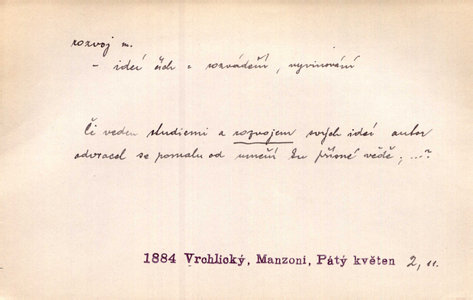 rozvoj m.
- ideí čích = rozvádění, vyvinování
Či veden studiemi a rozvojem svých ideí autor
odvracel se pomalu od umění ku přísné vědě, ...?
1884 Vrchlický, Manzoni, Pátý květen 2, 11.